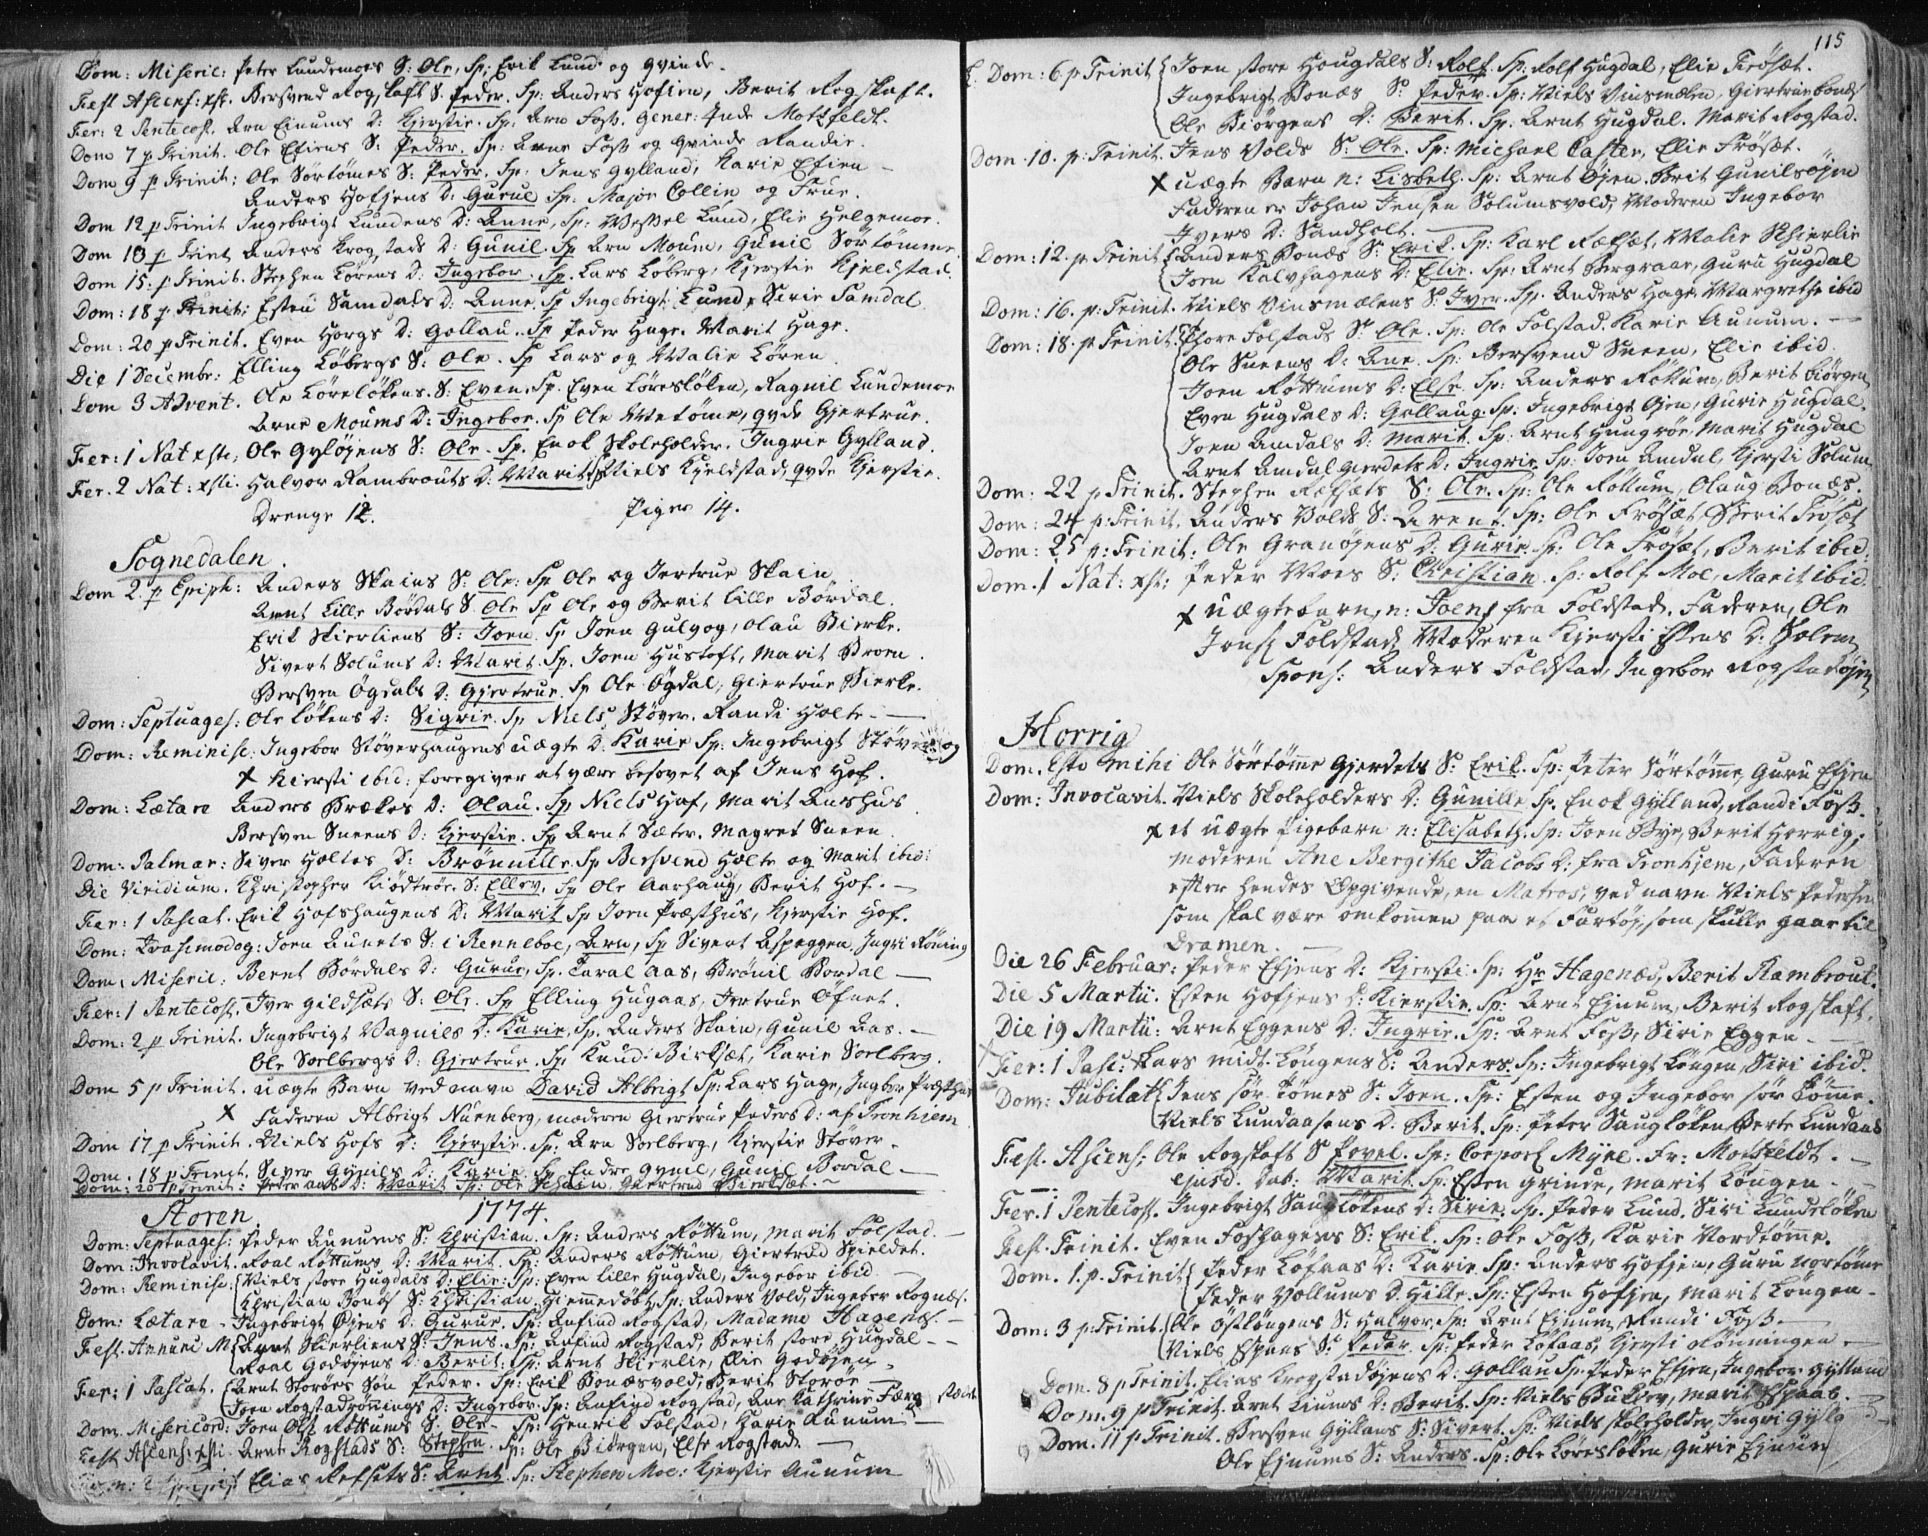 Dom: Miseric: Peter Lundemoes S: Ole, Sp: Erik Lund og Qvinde.
Fest Ascens: xsti. Bersvend Rogskaft S. Peder. Sp: Anders Hofien, Berit Rogskaft.
Fer: 2 Pentecost. Arn Einums D: Kjerstie. Sp: Arn Foss. Gener: Motzfeldt.
Dom 7 p Trinit. Ole Efiens S: Peder. Sp: Arne Foss og Qvinde Randie.
Dom 9 p Trinit: Ole Sørtømes S: Peder. Sp: Jens Gylland, Karie Efien
Anders Hofjens D: Guruè Sp: Major Collin og Frue.
Dom 12 p Trinit Ingebrigt Lundens D: Anne, Sp: Wessel Lund, Elie Helgemoe.
Dom 13 p Trinit Anders Krogstads D: Gunil. Sp Arn Moum, Gunil Sørtømme
Dom 15: p Trinit. Stephen Lørens D: Ingebor. Sp. Lars Løberg, Kjerstie Kjeldstad.
Dom: 18 p Trinit: Esten Samdals D: Anne. Sp Ingebrigt Lund, Sirie Samdal
Dom: 20 p Trinit. Even Horgs D: Gollau. Sp Peder Hage. Marit Hage.
Die 1 Decembr: Elling Løbergs S: Ole. Sp Lars og Malie Løren
Dom 3 Advent. Ole Løreløkens. S: Even. Sp. Even Løresløken, Ragnil Lundemoe
Arne Moums D: Ingebor. Sp Ole Metøme, qvde Gjertrue.
Fer: 1 Nat xsti, Ole Gyløjens S: Ole. Sp. Enok Skoleholder. Ingrie Gylland.
Fer. 2 Nat: xsti. Halvor Rambrouts D: Marit. Sp Niels Kjeldstad, qvde Kjerstie.
Drenge 12. Piger 14.
Sognedalen.
Dom 2. p Epiph: Anders Skains S: Ole: Sp Ole og Jertrue Skain
Arnt Lille Bordals S. Ole Sp Ole og Berit Lille Bordal.
Erik Skierliens S: Joen. Sp Joen Gulvog, Olau Bierke.
Sivert Solums D: Marit. Sp. Joen Hustoft, Marit Broen.
Bersven Øgdals D: Gjertrue. Sp Ole Øgdal, Giertrue Bierke.
Dom: Septuages: Ole Løkens D: Sigrie. Sp Niels Støver. Randi Holte.
Dom: Reminisc. Ingebor Støverhaugens uægte D: Karie Sp: Ingebrigt Støver og
x Kiersti ibid: foregiver at være besovet af Jens Hof.
Dom: Lætare Anders Brækes D: Olau. Sp Niels Hof, Marit Aushus
Bersven Sneens D: Kjerstie. Sp Arnt Sæter. Magret Sneen
Dom: Palmar: Siver Holtes D: Brønnille. Sp Bersvend Holte og Marit ibid:
Die Viridium. Christopher Kiødtrøe. S: Ellev. Sp Ole Aarhaug, Berit Hof.
Fer: 1 Pascat. Erik Hofshaugens D: Marit Sp Joen Præsthus, Kjerstie Hof.
Dom: Qvasimodog: Joen Aunets S: i Renneboe, Arn, Sp Sivert Aspeggen. Ingri Røning
Dom: Miseric: Bernt Bordals D: Gurue, Sp: Taral Aas, Brønil Bordal
Fer: 1 Pentecost. Iver Gildsæts S: Ole. Sp Elling Hugaas, Jertrue Øfnet.
Dom: 2 p Trinit. Ingebrigt Vagnils D: Karie, Sp. Anders Skain, Gunil Aas.
Ole Soelbergs D: Gjertrue. Sp: Knud Birksæt, Karie Soelberg.
Dom 5 p Trinit. uægte Barn ved navn David Albrigt Sp: Lars Hage, Ingbor Præsthus
x Faderen Albrigt Nürenberg, moderen Giertrue Peders D: af Tronhiem
Dom 17 p Trinit. Niels Hofs D: Kjerstie. Sp: Arn Soelberg, Kjerstie Støver
Dom. 18 p Trinit. Siver Gynils D: Karie Sp Endre Gynil, Gunil Bordal
Dom: 20 p Trinit: Peder Aas D: Marit Sp: Ole Schain, Giertrud Bierksæt.
Støren 1774.
Dom: Septuages: Peder Aunums S: Christian. Sp: Anders Røttum, Marit Folstad.
Dom: Invocavit. Roal Røttums D: Marit. Sp: Anders Røttum, Giertrud Spieldet.
Dom: Reminisc: Niels store Hugdals D: Elie: Sp: Even lille Hugdal, Ingebor ibid
Christian Bonæs S: Christian Hjemmedøbt, Sp: Anders Vold, Ingebor Rognæs.
Dom: Lætare Ingebrigt Øijens D: Gurue. Sp: Anfind Rogstad, Madame Hagenæs.
Fest. Anunc M. Arnt Skierliens S: Jens. Sp: Anfind Rogstad, Berit store Hugdal
Roal Godøjens D: Berit: Sp: Arnt Skierlie, Elie Godøjen
Fer: 1 Pascat. Arnt Storøes Søn Peder. Sp: Erik Bonæsvold, Berit Storøe
Joen Rogstadrønnings D: Ingebor. Sp: Anfind Rogstad, Ane Kathrine Færg
Dom. Misericord: Joen Ols Røttums S: Ole. Sp: Henrik Folstad, Karie Aunum
Fest Ascens: xsti. Arnt Rogstads S: Stephen. Sp: Ole Biørgen, Else Rogstad.
Elias Refsets S: Arnt. Sp: Stephen Moe: Kjerstie Aunum
115
Dom: 6 p Trinit Joen store Hougdals S: Rolf. Sp: Rolf Hugdal, Elie Frösæt.
Ingebrigt Bonæs S: Peder. Sp: Niels Vinsmælen, Giertrue Bonæs
Ole Biörgens D: Berit. Sp: Arnt Hugdal. Marit Rogstad.
Dom. 10. p: Trinit. Jens Volds S: Ole. Sp: Michael Caster, Elie Frøsæt.
x uægte Barn n: Lisbeth. Sp: Arnt Øjen. Brit Gunilsøjen
Faderen er Johan Jensen Solumsvold, Moderen Ingebor
Ivers D: Sandholt.
Dom: 12. p: Trinit Anders Bonæs S: Erik. Sp: Karl Ræfsæt, Malie Skierlie
Joen Kalvhagens D: Elie. Sp: Arnt Bergraae, Guru Hugdal
Dom: 16. p: Trinit. Niels Vinsmælens S: Iver. Sp. Anders Hage, Margrethe ibid
Dom: 18. p Trinit. Thore Folstads S: Ole. Sp: Ole Folstad. Karie Aunum.
Ole Sneens D: Ane. Sp: Bersvend Sneen, Elie ibid.
Joen Røttums D: Else. Sp: Anders Røttum, Berit Biørgen
Even Hugdals D: Gollaug. Sp: Ingebrigt Øjen, Gurie Hugdal.
Joen Amdals D: Marit. Sp: Arnt Hungrøe, Marit Hugdal
Arnt Amdalgierdets D: Ingrie. Sp: Joen Amdal, Kjersti Solum
Dom: 22 p Trinit. Stephen Ræfsæts S: Ole. Sp: Ole Røttum, Olaug Bonæs.
Dom: 24 p: Trinit. Anders Volds S: Arent. Sp: Ole Frøsæt, Berit Frøsæt
Dom: 25 p: Trinit: Ole Granøjens D: Gurie. Sp: Ole Frøsæt, Berit ibid.
Dom. 1 Nat: xsti: Peder Moes S: Christian. Sp: Rolf Moe, Marit ibid.
x uægte barn, n: Joen, fra Foldstad, Faderen, Ole
Jons: Foldstad, Moderen Kjersti Estens D: Solem
Spons: Anders Foldstad, Ingebor Rogstadøjen
Horrig
Dom. Esto mihi Ole Sørtømme Gjerdets S: Erik. Sp: Peter Sörtøme, Guru Efjen
Dom: Invocavit. Niels Skoleholders D: Gunille Sp. Enok Gylland, Randi Foss.
x et uægte Pigebarn n: Elisabeth: Sp: Joen Bye, Berit Horrig,
moderen Ane Bergithe Jacobs D: fra Tronhjem, Faderen
efter hendes Opgivende, en Matros, ved navn Niels Pedersen
som skal være omkommen paa et Fartøj, som skulle gaae til
Dramen.
Die 26 Februar: Peder Efjens D: Kjersti. Sp: Hr Hagenæs, Berit Rambrout.
Die 5 Martii. Esten Hofjens D: Kierstie. Sp: Arnt Ejnum, Berit Rogskaft.
Die 19 Martii: Arnt Eggens D: Ingrie. Sp: Arnt Foss, Sirie Eggen.
Fer: 1 Pasc: Lars midt-Löngens S: Anders. Sp: Ingebrigt Löngen, Siri ibid.
Dom: Jubilate Jens sør Tömes S: Joen. Sp: Esten og Ingebor sør Tömme.
Niels Lundaasens D: Berit. Sp: Peter Saugløken, Berte Lundaas
Fest. Ascens; Ole Rogskaft S Povel. Sp: Corporl Myre. Fr: Motzfeldt.
Ejusd. Dab: Marit. Sp. Esten Grinde, Marit Løngen
Fer. 1 Pentecost. Ingebrigt Saugløkens D: Sirie. Sp. Peder Lund. Siri Lundsløken
Fest. Trinit. Even Foshagens S: Erik. Sp: Ole Foss, Karie Nordtømme.
Dom. 1. p. Trinit Peder Løfaas D: Karie. Sp: Anders Hofjen, Guru Nortøme
Peder Vollums D. Hille. Sp: Esten Hofjen, Marit Løngen
Dom: 3 p: Trinit. Ole Östlöngens S: Halvor. Sp: Arnt Ejnum, Randi Foss.
Niels Espaas S: Peder. Sp: Peder Løfaas, Kjersti Rønningen
Dom. 8 p Trinit. Elias Krogstadøjens D: Gollau Sp: Peder Efjen, Ingebor Gylland
Dom. 9 p Trinit. Arnt Liums D: Berit. Sp: Niels Budlev, Marit Espaas.
Dom. 11 p Trinit. Bersven Gyllans S: Sivert. Sp: Niels Skoleholder, Ingri Gyllø
Ole Ejnums S: Anders. Sp: Ole Løresløken, Gurie Ejnum